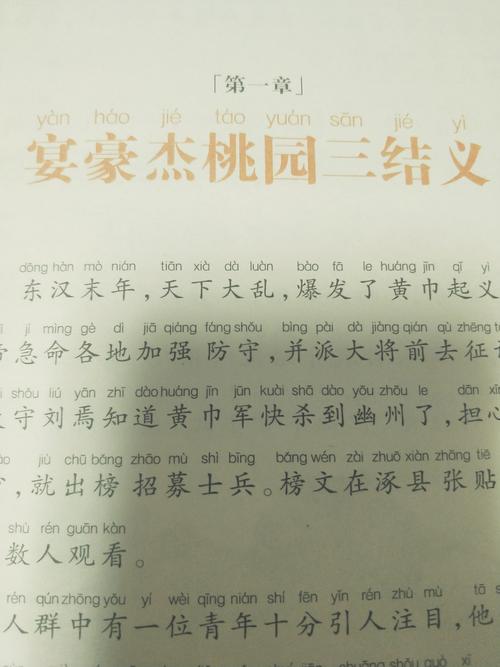 「第一章」
yàn háo jié táo yuán sān jié yì
宴豪杰桃园三结义
dōng hàn mò nián tiān xià dà luàn bào fā le huáng jīn qǐ yì
东汉末年,天下大乱,爆发了黄巾起义
jí mìng gè dì jiā qiáng fáng shǒu bìng pài dà jiàng qián qù zhēng
急命各地加强防守,并派大将前去征
shǒu liú yān zhī dào huáng jīn jūn kuài shā dào yōu zhōu le dān xīn
守刘焉知道黄巾军快杀到幽州了,担心
jiù chū bǎng zhāo mù shì bīng bǎng wén zài zhuō xiàn zhāng tiē
,就出榜招募士兵。榜文在涿县张贴
shù rén guān kàn
数人观看。
rén qún zhōng yǒu yí wèi qīng nián shí fēn yǐn rén zhù mù tā
人群中有一位青年十分引人注目,他